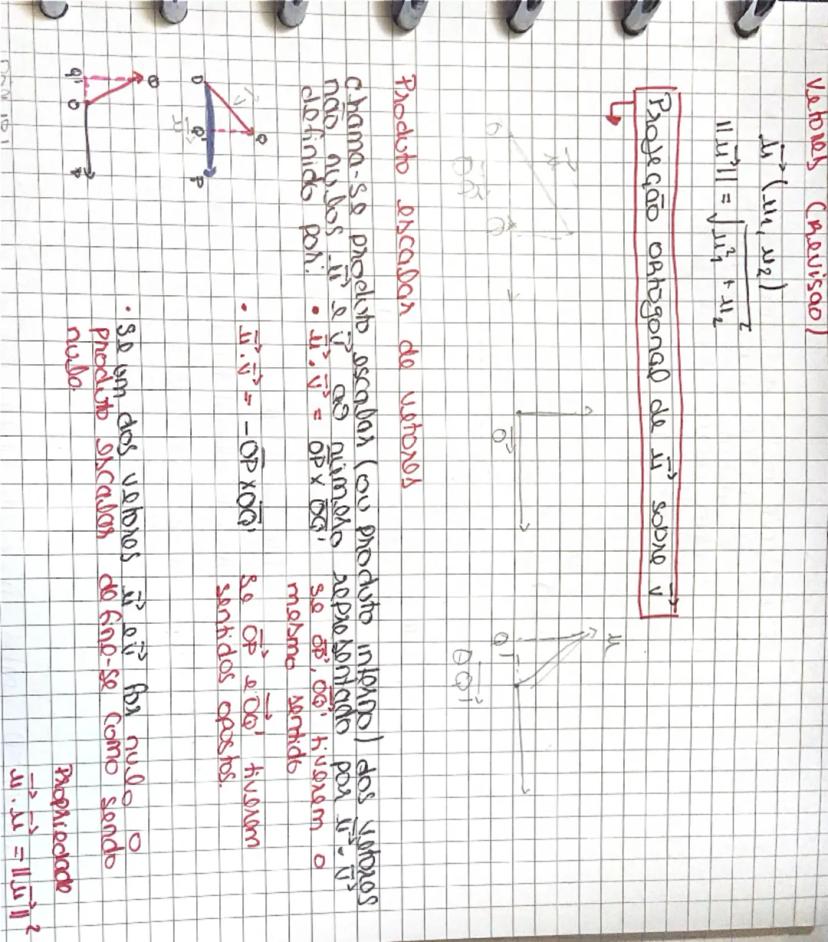 Vetores (revisão)
u⃗ (u₁, u₂)
||u⃗|| = √(u₁² + u₂²)
Projeção ortogonal de u⃗ sobre v⃗
O
Q'
u⃗
OQ'
O⃗
u
O
OQ'
Produto escalar de vetores
Chama-se produto escalar (ou produto interno) dos vetores
não nulos u⃗ e v⃗ ao número representado por u⃗ · v⃗
definido por:
• u⃗ · v⃗ = OP × OQ' se OP⃗, OQ'⃗ tiverem o
mesmo sentido
• u⃗ · v⃗ = -OP × OQ' se OP⃗ e OQ'⃗ tiverem
sentidos opostos.
O
Q'
Q
P
u⃗
v⃗
• Se um dos vetores u⃗ e v⃗ for nulo o
produto escalar define-se como sendo
nulo.
Q'
O
Q
P
Propriedade
u⃗ · u⃗ = ||u⃗||²